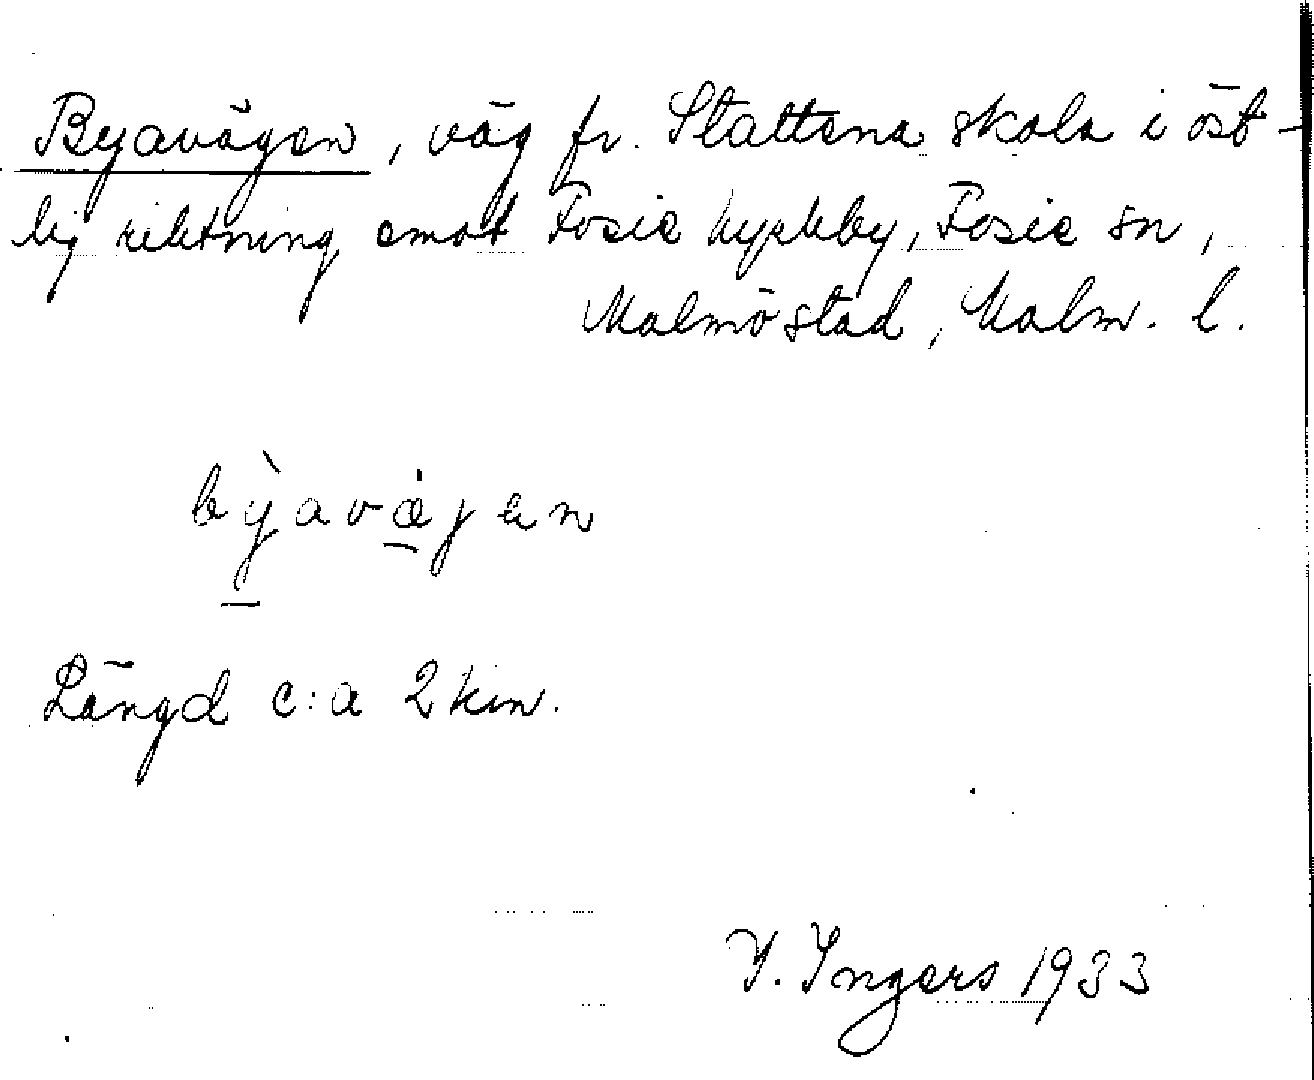 Byavägen, väg fr. Stattena skola i öst-
lig riktning emot Fosie kyrkby, Fosie sn,
Malmö stad, Malm. l.
bỳavæ̀jen
Längd c:a 2 km.
I. Ingers 1933